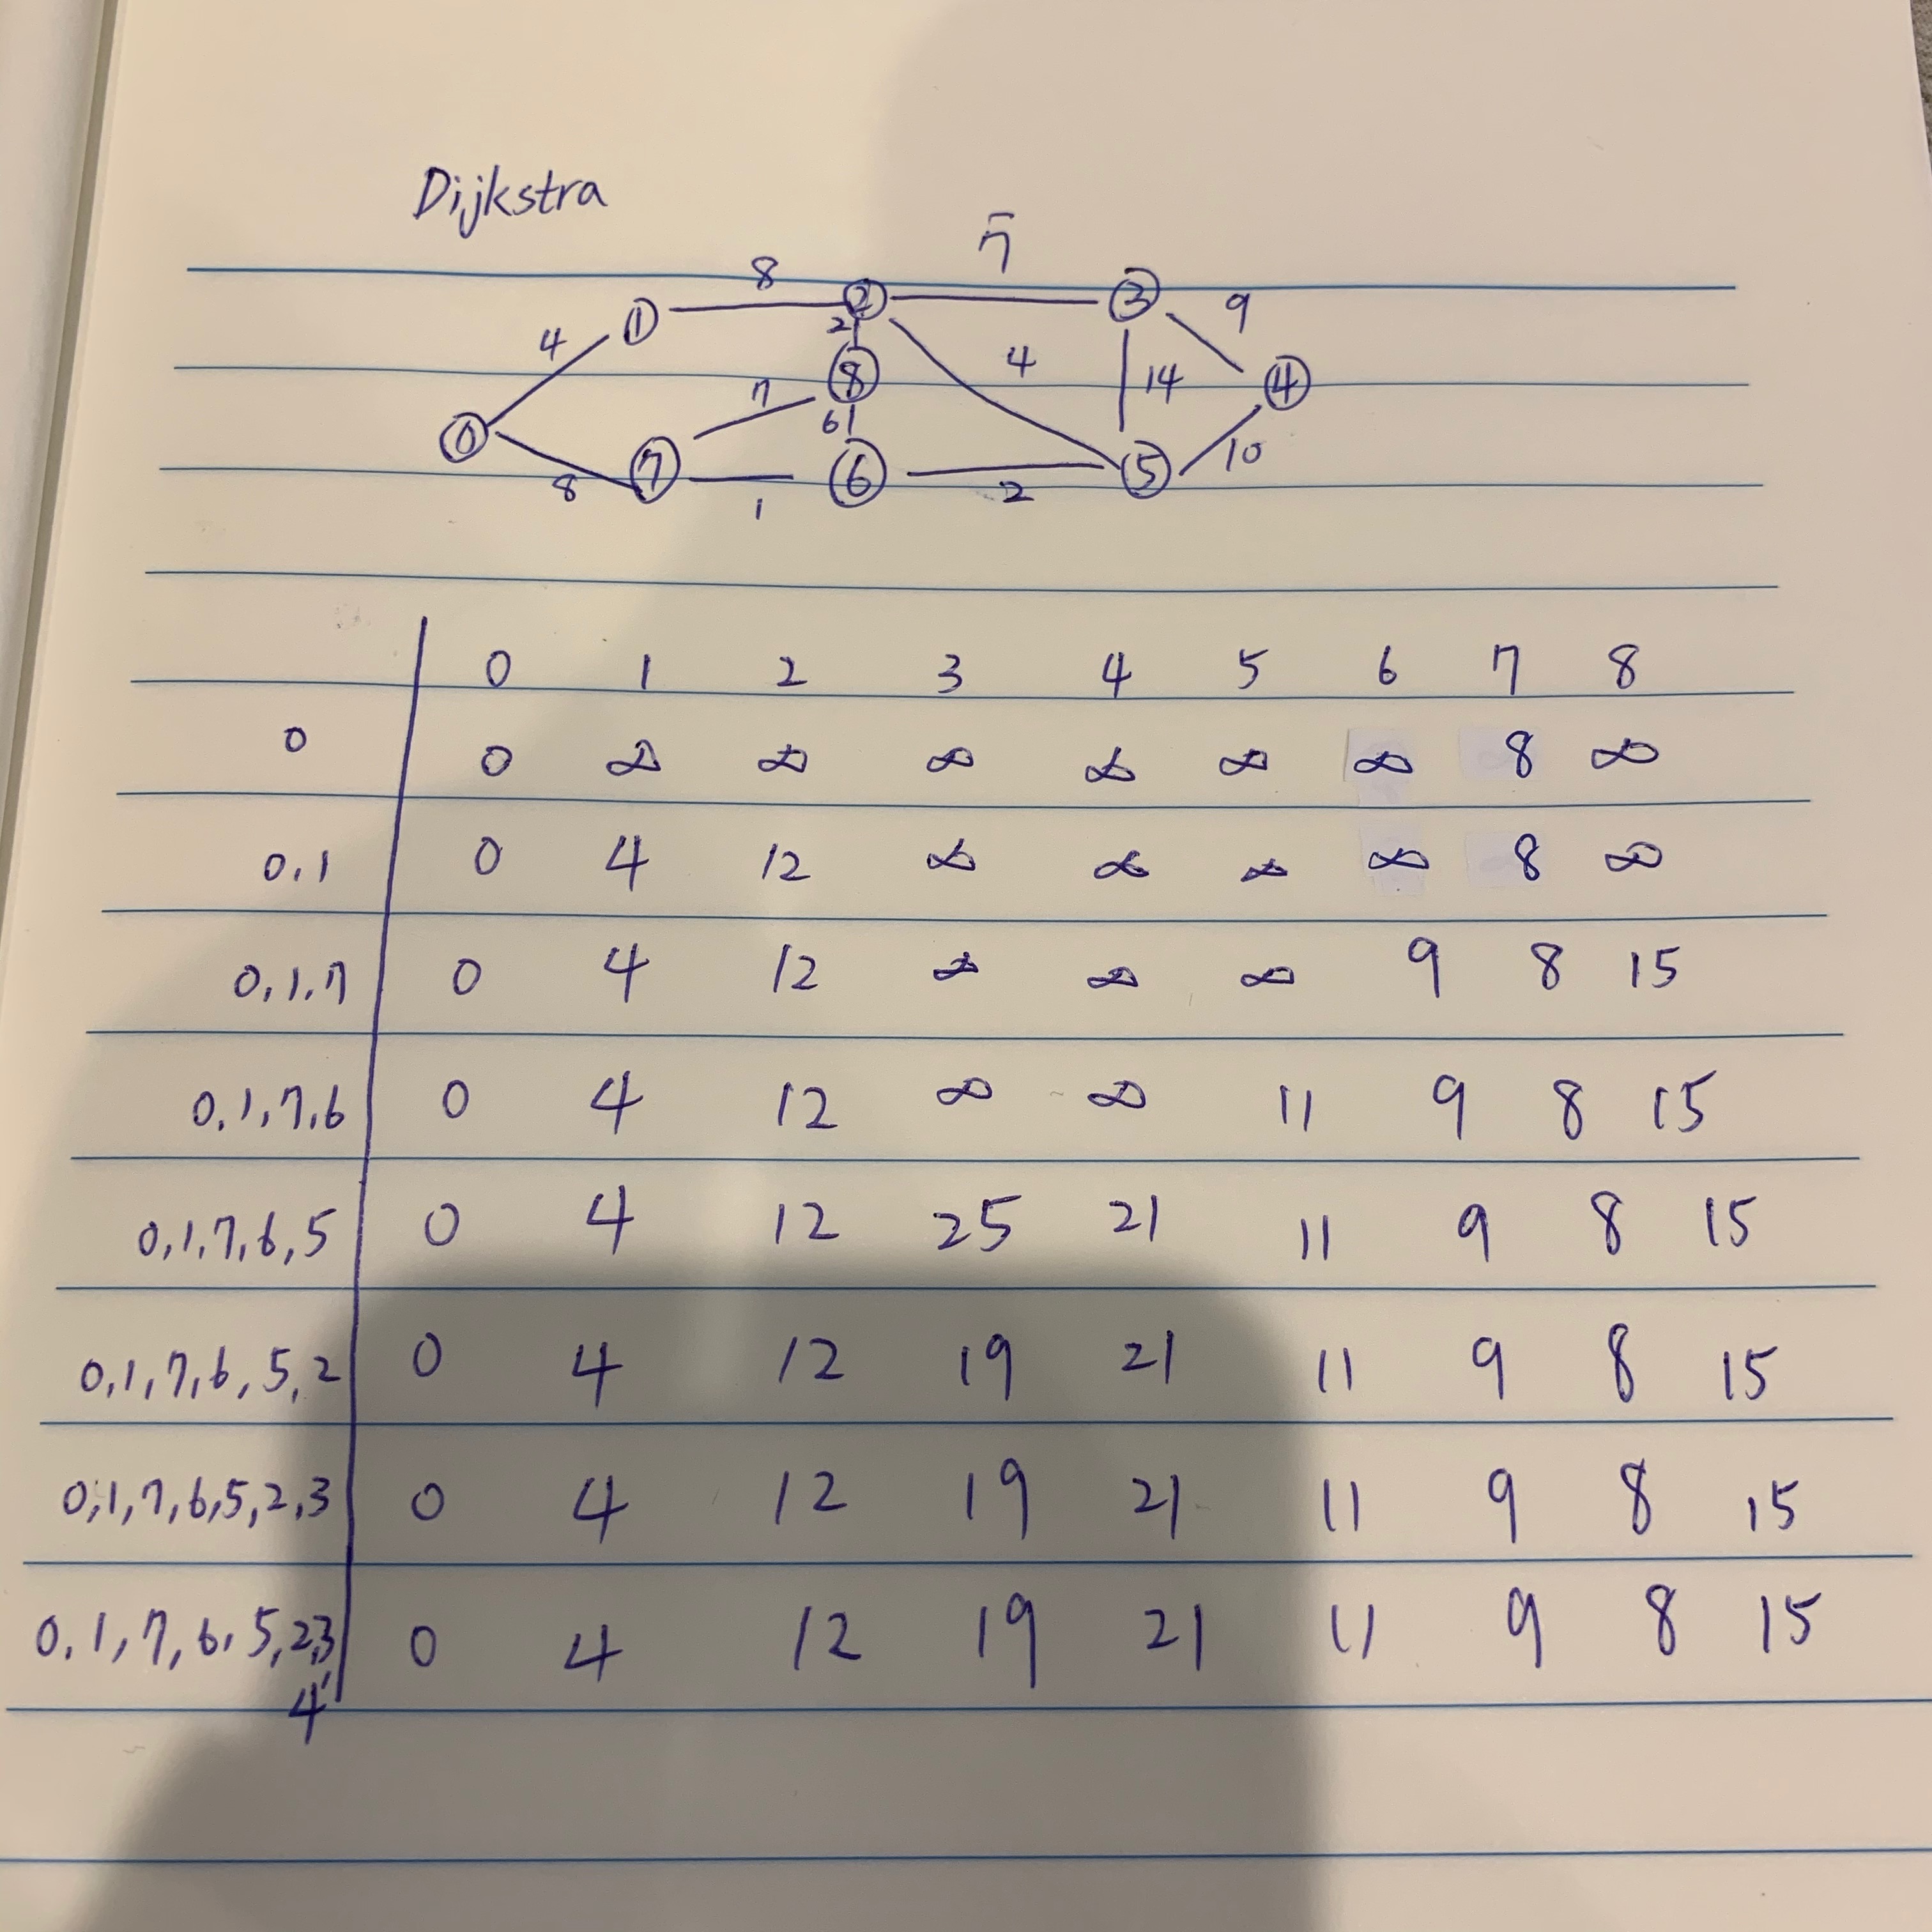 Dijkstra
7
8 2 3 9
4 1 2 8 4 14 4
0 7 6
8 7 1 6 2 5 10
0 1 2 3 4 5 6 7 8
0 0 ∞ ∞ ∞ ∞ ∞ ∞ 8 ∞
0,1 0 4 12 ∞ ∞ ∞ ∞ 8 ∞
0,1,7 0 4 12 ∞ ∞ ∞ 9 8 15
0,1,7,6 0 4 12 ∞ ∞ 11 9 8 15
0,1,7,6,5 0 4 12 25 21 11 9 8 15
0,1,7,6,5,2 0 4 12 19 21 11 9 8 15
0,1,7,6,5,2,3 0 4 12 19 21 11 9 8 15
0,1,7,6,5,2,3 0 4 12 19 21 11 9 8 15
,4